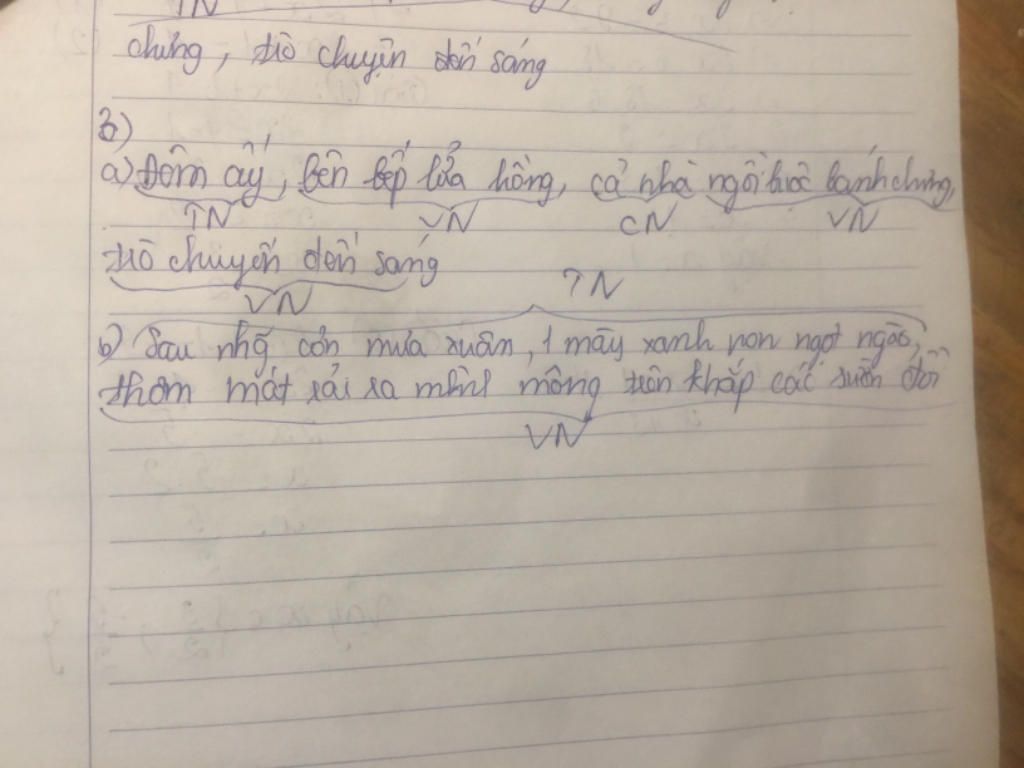 TN
chưng, trò chuyện đến sáng
3)
a) Đêm ấy, bên bếp lửa hồng, cả nhà ngồi luộc bánh chưng,
TN VN CN VN
trò chuyến đến sáng
VN TN
b) Sau nhg cơn mưa xuân, 1 mày xanh non ngọt ngào,
thơm mát trải ra mênh mông trên khắp các sườn đồi
VN